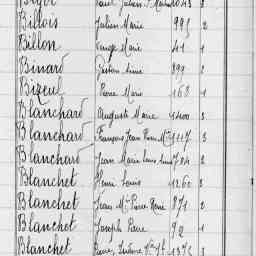 Bigot Paul Julien 1043 3
Billois Julien Marie 993 2
Billon Marie 41 1
Binard 899 2
Bizeul Pierre Marie 168 1
Blanchard Auguste Marie 1400 3
Blanchard François Jean 1117 3
Blanchard Jean Marie Louis 784 2
Blanchet Henri Louis 1260 3
Blanchet Jean Mie Pierre René 871 2
Blanchet Joseph Pierre 92 1
Blanchet Pierre 1373 3